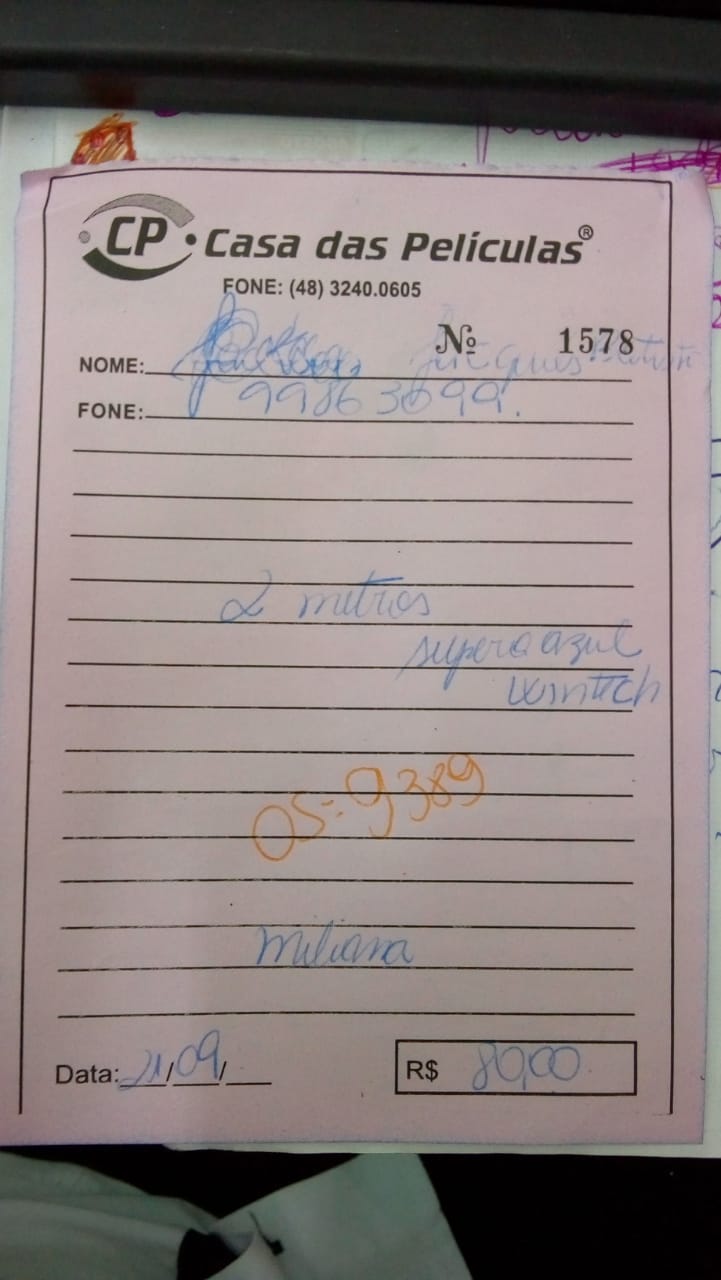 CP Casa das Películas®
FONE: (48) 3240.0605
Nº 1578
NOME:
FONE: 99863099.
2 metros
super azul
wintech
OS=9389
Data: 21/09/
R$ 80,00